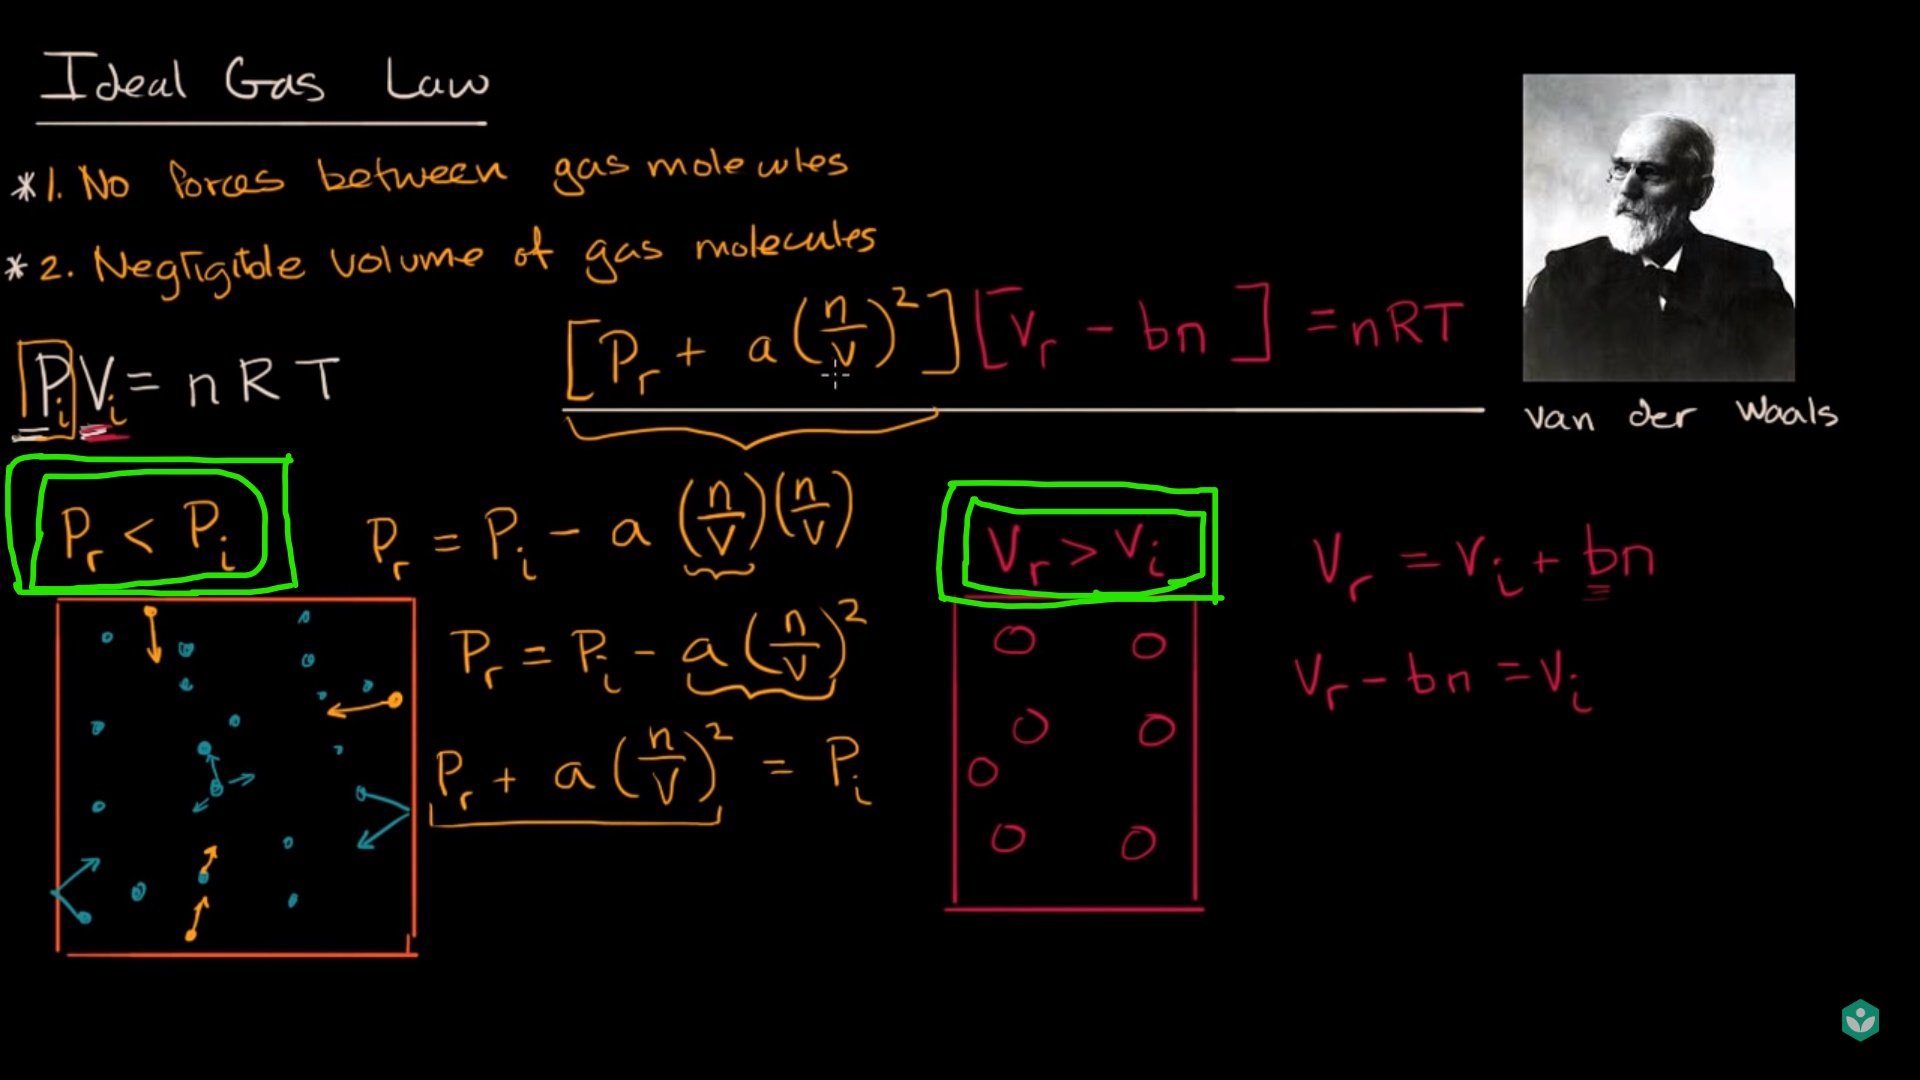 Ideal Gas Law
* 1. No forces between gas molecules
* 2. Negligible volume of gas molecules
[P_r + a(n/V)²][V_r - bn] = nRT
P_i V_i = nRT
van der Waals
P_r < P_i
P_r = P_i - a(n/V)(n/V)
V_r > V_i
V_r = V_i + bn
P_r = P_i - a(n/V)²
V_r - bn = V_i
P_r + a(n/V)² = P_i